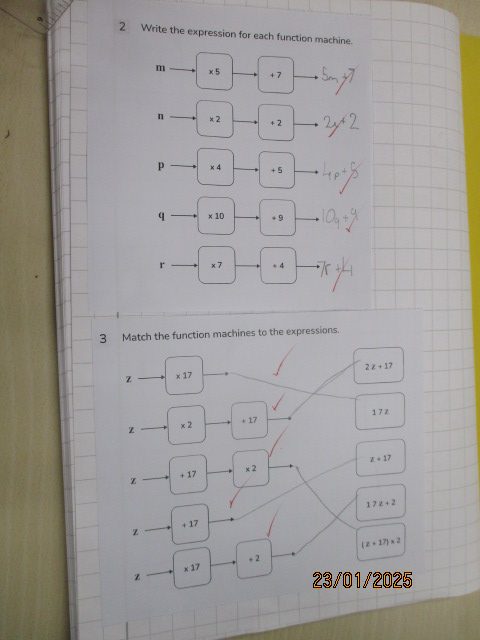 2 Write the expression for each function machine.
m x 5 + 7 5m+7
n x 2 + 2 2n+2
p x 4 + 5 4p+5
q x 10 + 9 10q+9
r x 7 + 4 7r+4
3 Match the function machines to the expressions.
z x 17 2 z + 17
z x 2 + 17 1 7 z
z + 17 x 2 z + 17
z + 17 1 7 z + 2
z x 17 + 2 ( z + 17) x 2
23/01/2025